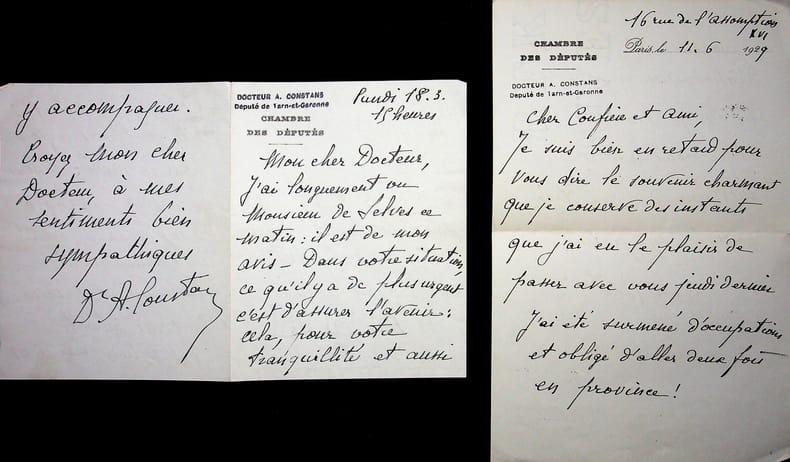 y accompagner.
Croyez mon cher
Docteur, à mes
sentiments bien
sympathiques
Dr A. Constans
DOCTEUR A. CONSTANS
Député de Tarn-et-Garonne
CHAMBRE
DES DÉPUTÉS
Lundi 18.3.
15 heures
Mon cher Docteur,
J'ai longuement vu
Monsieur de Selves ce
matin : il est de mon
avis - Dans votre situation,
ce qu'il y a de plus urgent
c'est d'assurer l'avenir :
cela, pour votre
tranquillité et aussi
16 rue de l'assomption
XVI
CHAMBRE
DES DÉPUTÉS
Paris, le 11.6 1929
DOCTEUR A. CONSTANS
Député de Tarn-et-Garonne
Cher Confrère et ami,
Je suis bien en retard pour
vous dire le souvenir charmant
que je conserve des instants
que j'ai eu le plaisir de
passer avec vous jeudi dernier
J'ai été surmené d'occupations
et obligé d'aller deux fois
en province !